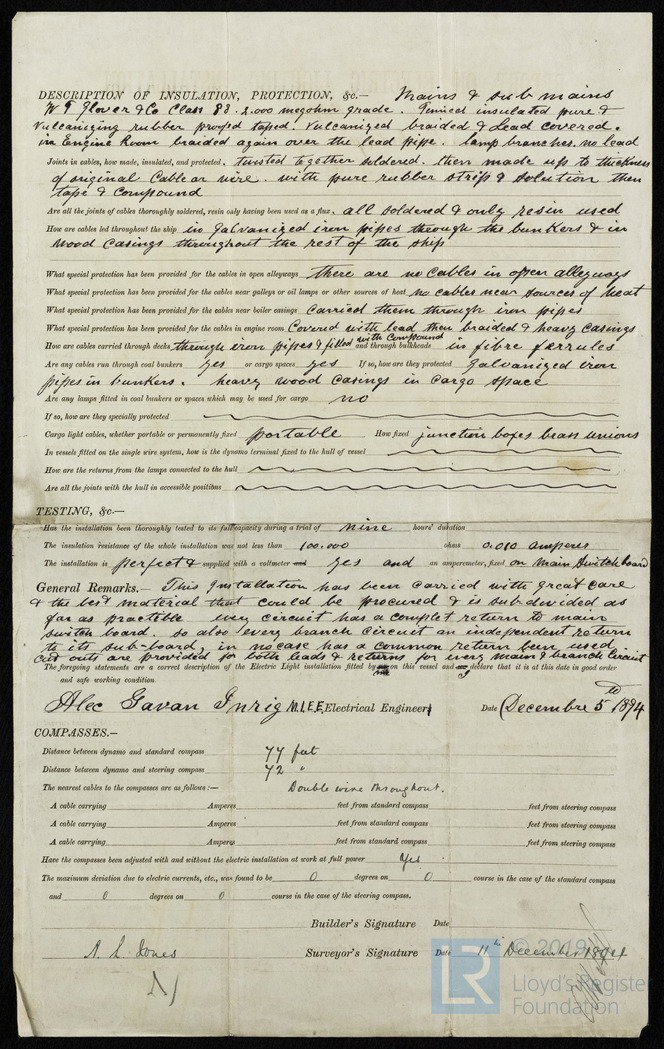 DESCRIPTION OF INSULATION, PROTECTION, &c.— Mains & sub mains
W T Glover & Co Class 83. 2.000 megohm grade. Tinned insulated pure &
Vulcanizing rubber proofed taped. Vulcanized braided & Lead covered.
in Engine Room braided again over the lead pipe. lamp branches. no lead
Joints in cables, how made, insulated, and protected. twisted together soldered. then made up to thickness
of original Cable or wire. with pure rubber strip & solution then
tape & compound
Are all the joints of cables thoroughly soldered, resin only having been used as a flux. all soldered & only resin used
How are cables led throughout the ship in galvanized iron pipes through the bunkers & in
wood casings throughout the rest of the ship
What special protection has been provided for the cables in open alleyways there are no cables in open alleyways
What special protection has been provided for the cables near galleys or oil lamps or other sources of heat no cables near sources of heat
What special protection has been provided for the cables near boiler casings carried them through iron pipes
What special protection has been provided for the cables in engine room Covered with lead then braided & heavy casings
How are cables carried through decks through iron pipes & filled with compound and through bulkheads in fibre ferrules
Are any cables run through coal bunkers yes or cargo spaces yes If so, how are they protected galvanized iron
pipes in bunkers. heavy wood casings in cargo space
Are any lamps fitted in coal bunkers or spaces which may be used for cargo no
If so, how are they specially protected
Cargo light cables, whether portable or permanently fixed portable How fixed junction boxes brass unions
In vessels fitted on the single wire system, how is the dynamo terminal fixed to the hull of vessel
How are the returns from the lamps connected to the hull
Are all the joints with the hull in accessible positions
TESTING, &c.—
Has the installation been thoroughly tested to its full capacity during a trial of nine hours' duration
The insulation resistance of the whole installation was not less than 100.000 ohms 0.010 amperes
The installation is perfect & supplied with a voltmeter and yes and an amperemeter, fixed on main switch board
General Remarks.— This Installation has been carried with great care
& the best material that could be procured & is subdivided as
far as practible every circuit has a complet return to main
switch board. so also every branch circuit an independent return
to its sub-board, in no case has a common return been used
Cut outs are provided for both leads & returns for every main & branch Circuit
The foregoing statements are a correct description of the Electric Light installation fitted by me on this vessel and declare that it is at this date in good order
and safe working condition
Alec Gavan Inrig M.I.E.E. Electrical Engineer Date Decembre 5th 1894
COMPASSES.—
Distance between dynamo and standard compass 77 feet
Distance between dynamo and steering compass 72 "
The nearest cables to the compasses are as follows:— Double wire throughout.
A cable carrying Amperes feet from standard compass feet from steering compass
A cable carrying Amperes feet from standard compass feet from steering compass
A cable carrying Amperes feet from standard compass feet from steering compass
Have the compasses been adjusted with and without the electric installation at work at full power Yes
The maximum deviation due to electric currents, etc., was found to be 0 degrees on 0 course in the case of the standard compass
and 0 degrees on 0 course in the case of the steering compass.
Builder's Signature Date
A. L. Jones Surveyor's Signature Date 11th December 1894
© 2019
LR Lloyd's Register
Foundation